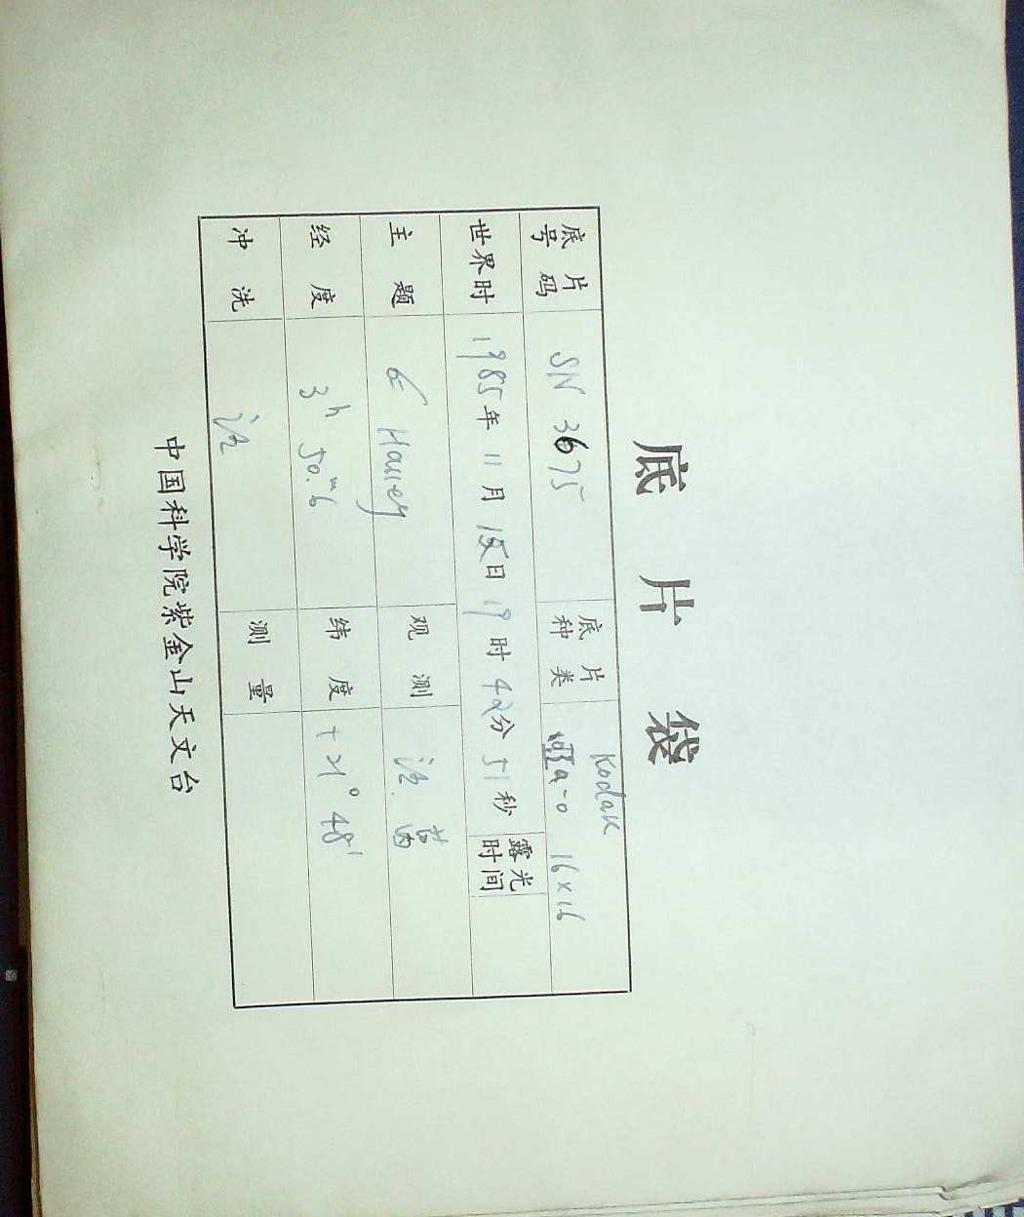 底片袋
底片号码 SN 3675 底片种类 Kodak IIa-0 16×16
世界时 1985年11月15日19时42分51秒 露光时间
主题 Halley 观测
经度 3h 50.m6 纬度 +21° 48'
冲洗 测量
中国科学院紫金山天文台